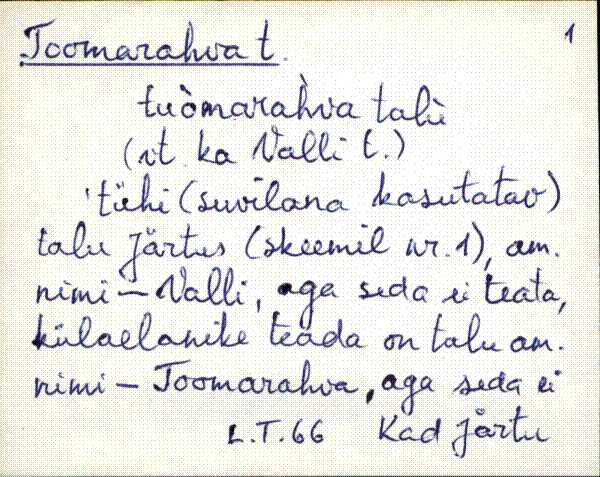 Toomarahva t. 1
tuòmaràhva talù
(vt. ka Valli t.)
'tühi (suvilana kasutatav)
talu Järtus (skeemil nr. 1), am.
nimi – Valli, aga seda ei teata,
külaelanike teada on talu am.
nimi – Toomarahva, aga seda ei
L.T. 66 Kad Järtu